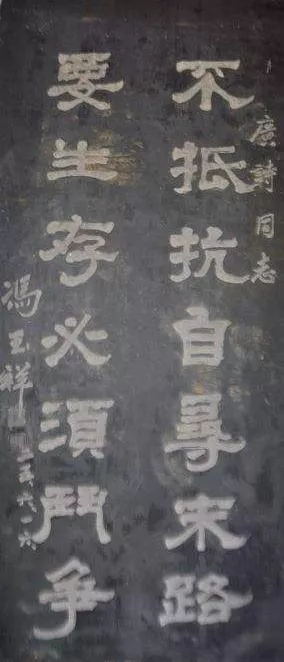 廣詩同志
不抵抗自尋末路
要生存必須鬥爭
馮玉祥